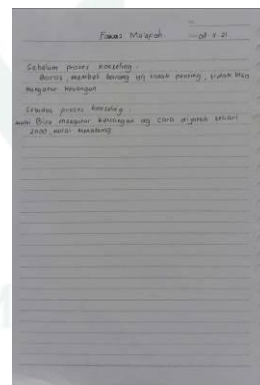 Fawas Mu'afah. 08-4-21
Sebelum proses konseling.
Boros, membeli barang yg tidak penting, tidak bisa
mengatur keuangan
Setelah proses konseling.
mulai Bisa mengatur keuangan yg cara dijatah sehari
2000, mulai menabung